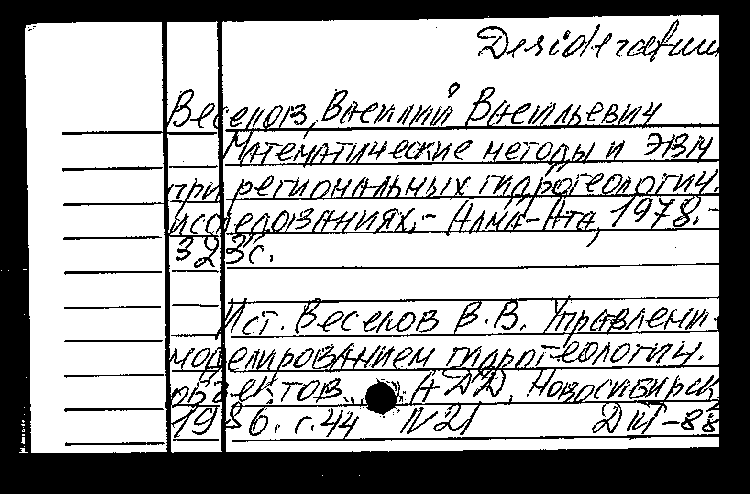 Desideratum
Веселов, Василий Васильевич
Математические методы и ЭВМ
при региональных гидрогеологич.
исследованиях.- Алма-Ата, 1978.-
323с.
Ист. Веселов В.В. Управлени
моделированием гидрогеологич.
объектов... АДД, Новосибирск
1986. с.44 N21 ДМ-88